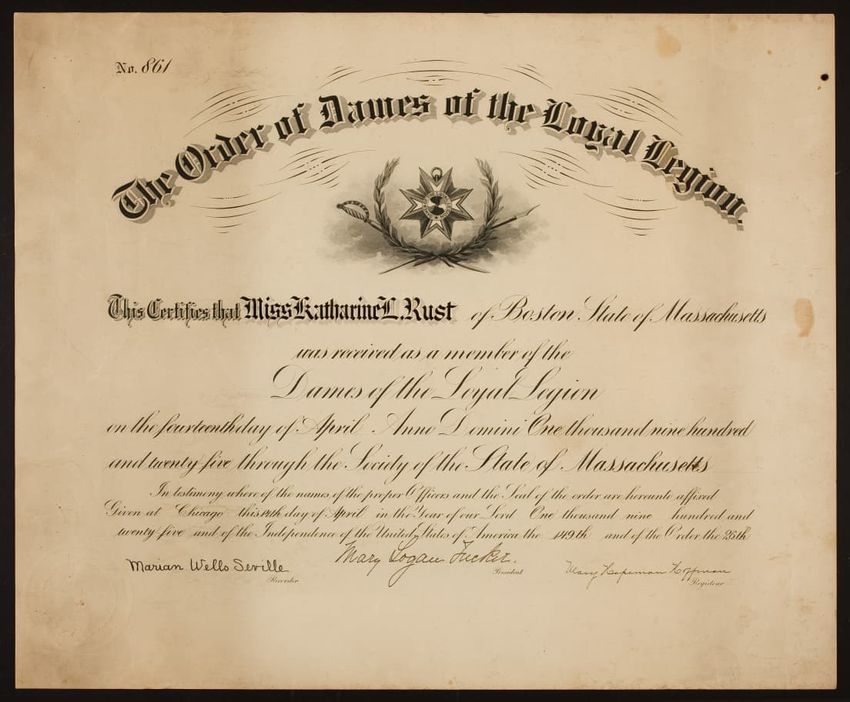 No. 861
The Order of Dames of the Loyal Legion.
This Certifies that Miss Katharine L. Rust of Boston State of Massachusetts
was received as a member of the
Dames of the Loyal Legion
on the fourteenth day of April Anno Domini One thousand nine hundred
and twenty five through the Society of the State of Massachusetts
In testimony where of the names of the proper Officers and the Seal of the order are hereunto affixed
Given at Chicago this 14th day of April in the Year of our Lord One thousand nine hundred and
twenty-five and of the Independence of the United States of America the 149th and of the Order the 26th
Marian Wells Seville Mary Logan Tucker. Mary Hoffman
Recorder President Registrar